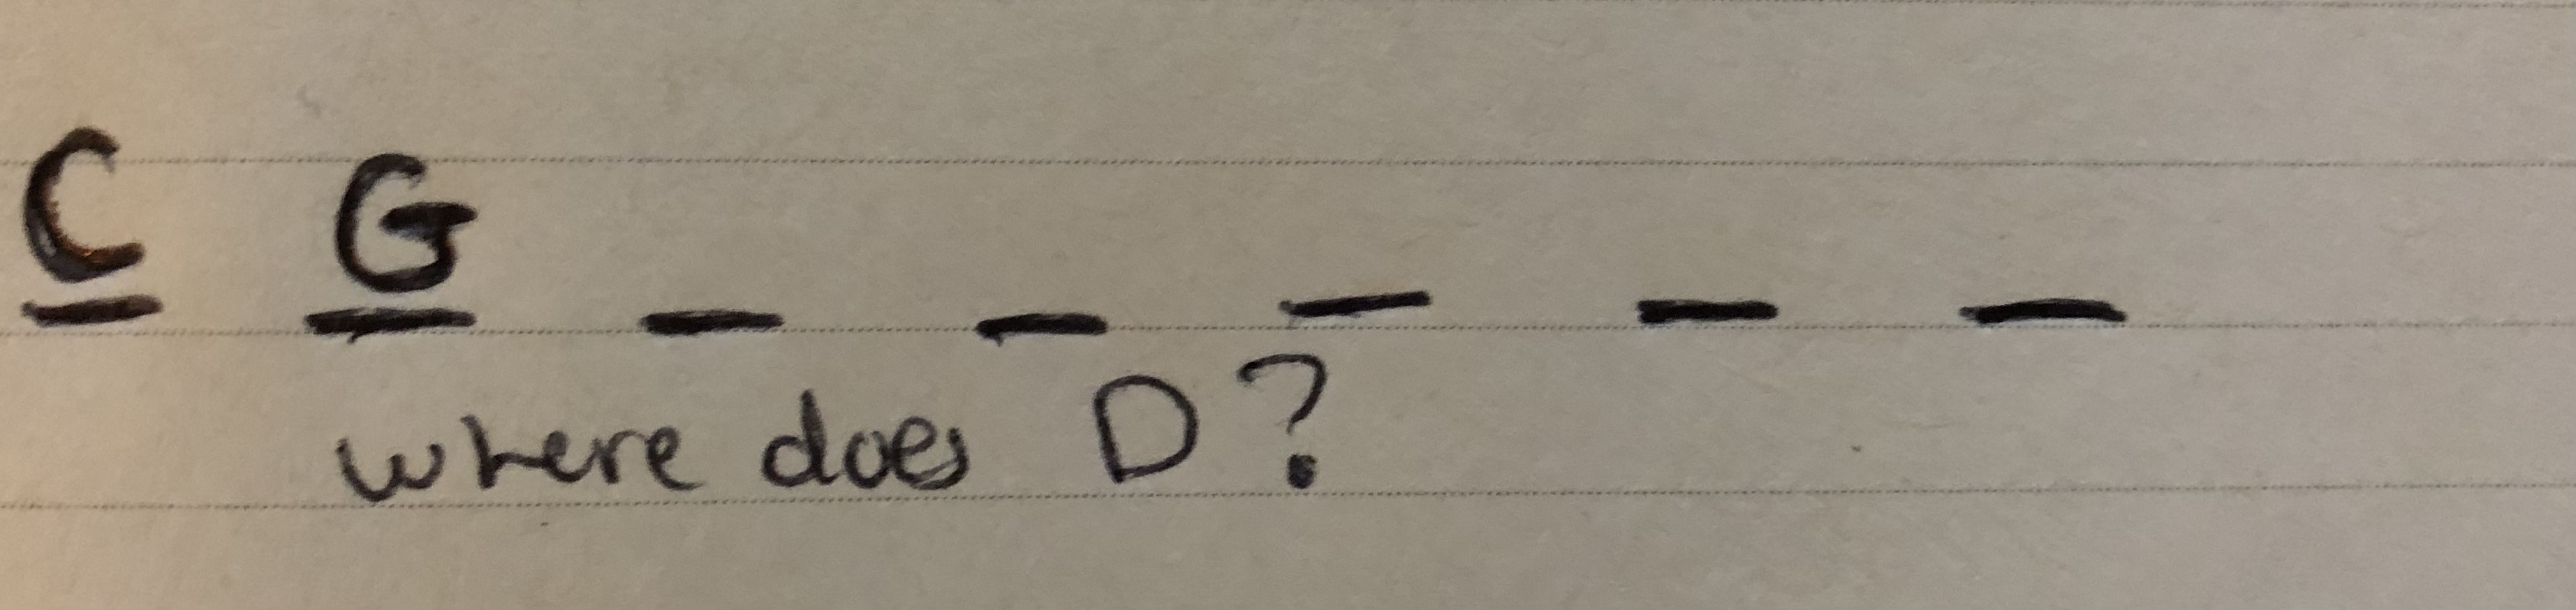 C G _ _ _ _ _
where does D?